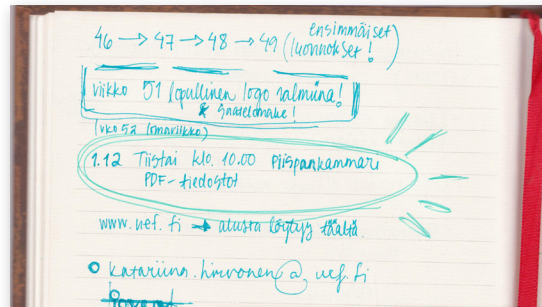 46 → 47 → 48 → 49 (ensimmäiset
luonnokset!)
viikko 51 lopullinen logo valmiina!
& saatelomake!
(vko 52 lomaviikko)
1.12 Tiistai klo. 10.00 Piispankammari
PDF-tiedostot
www.uef.fi → alusta löytyy täältä.
katariina.hirvonen@uef.fi